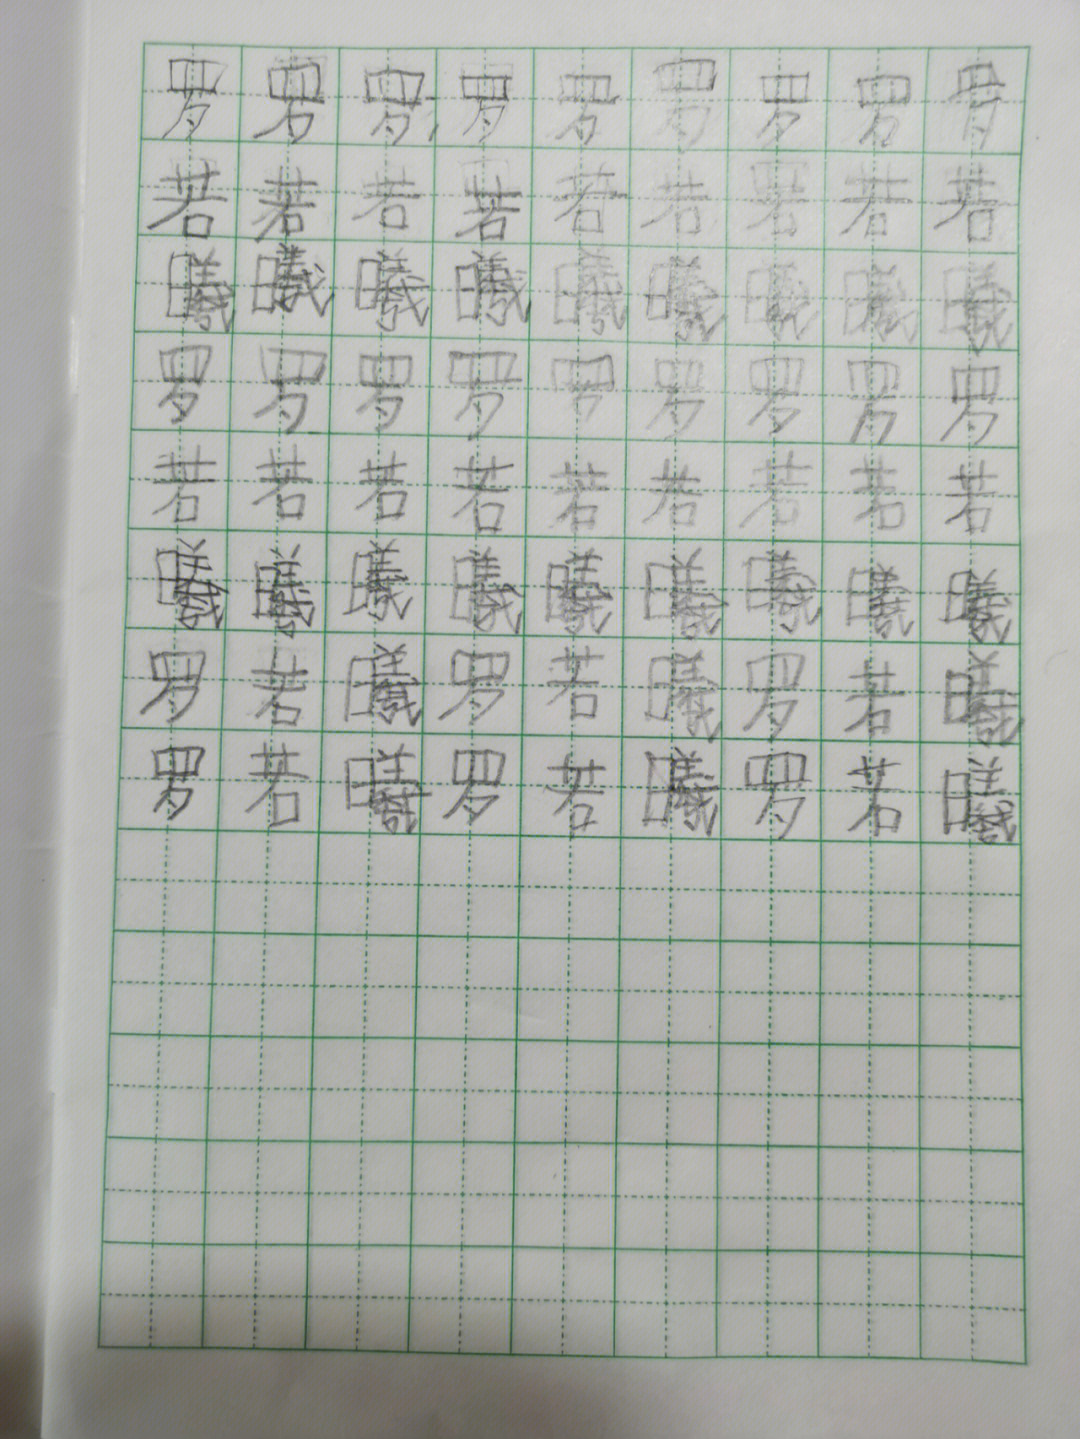 罗罗罗罗罗罗罗罗罗
若若若若若若若若若
曦曦曦曦曦曦曦曦曦
罗罗罗罗罗罗罗罗罗
若若若若若若若若若
曦曦曦曦曦曦曦曦曦
罗若曦罗若曦罗若曦
罗若曦罗若曦罗若曦